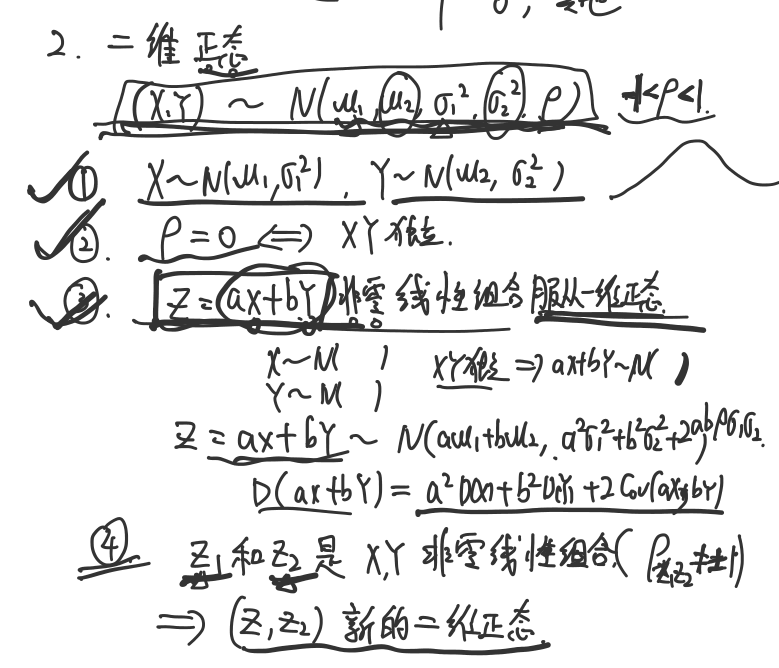 2. 二维正态
(X,Y) ~ N(μ₁, μ₂, σ₁², σ₂², ρ) -1<ρ<1.
① X~N(μ₁,σ₁²), Y~N(μ₂, σ₂²)
②. ρ=0 ⟺ XY独立.
③. Z=ax+bY 非零线性组合服从一维正态
X~N( ) XY独立 ⇒ ax+bY~N( )
Y~N( )
Z=ax+bY ~ N(aμ₁+bμ₂, a²σ₁²+b²σ₂²+2abρσ₁σ₂)
D(ax+bY)=a²D(X)+b²D(Y)+2Cov(ax,bY)
④ Z₁和Z₂是 X,Y 非零线性组合(ρz₁z₂≠±1)
⇒ (Z,Z₂) 新的二维正态.